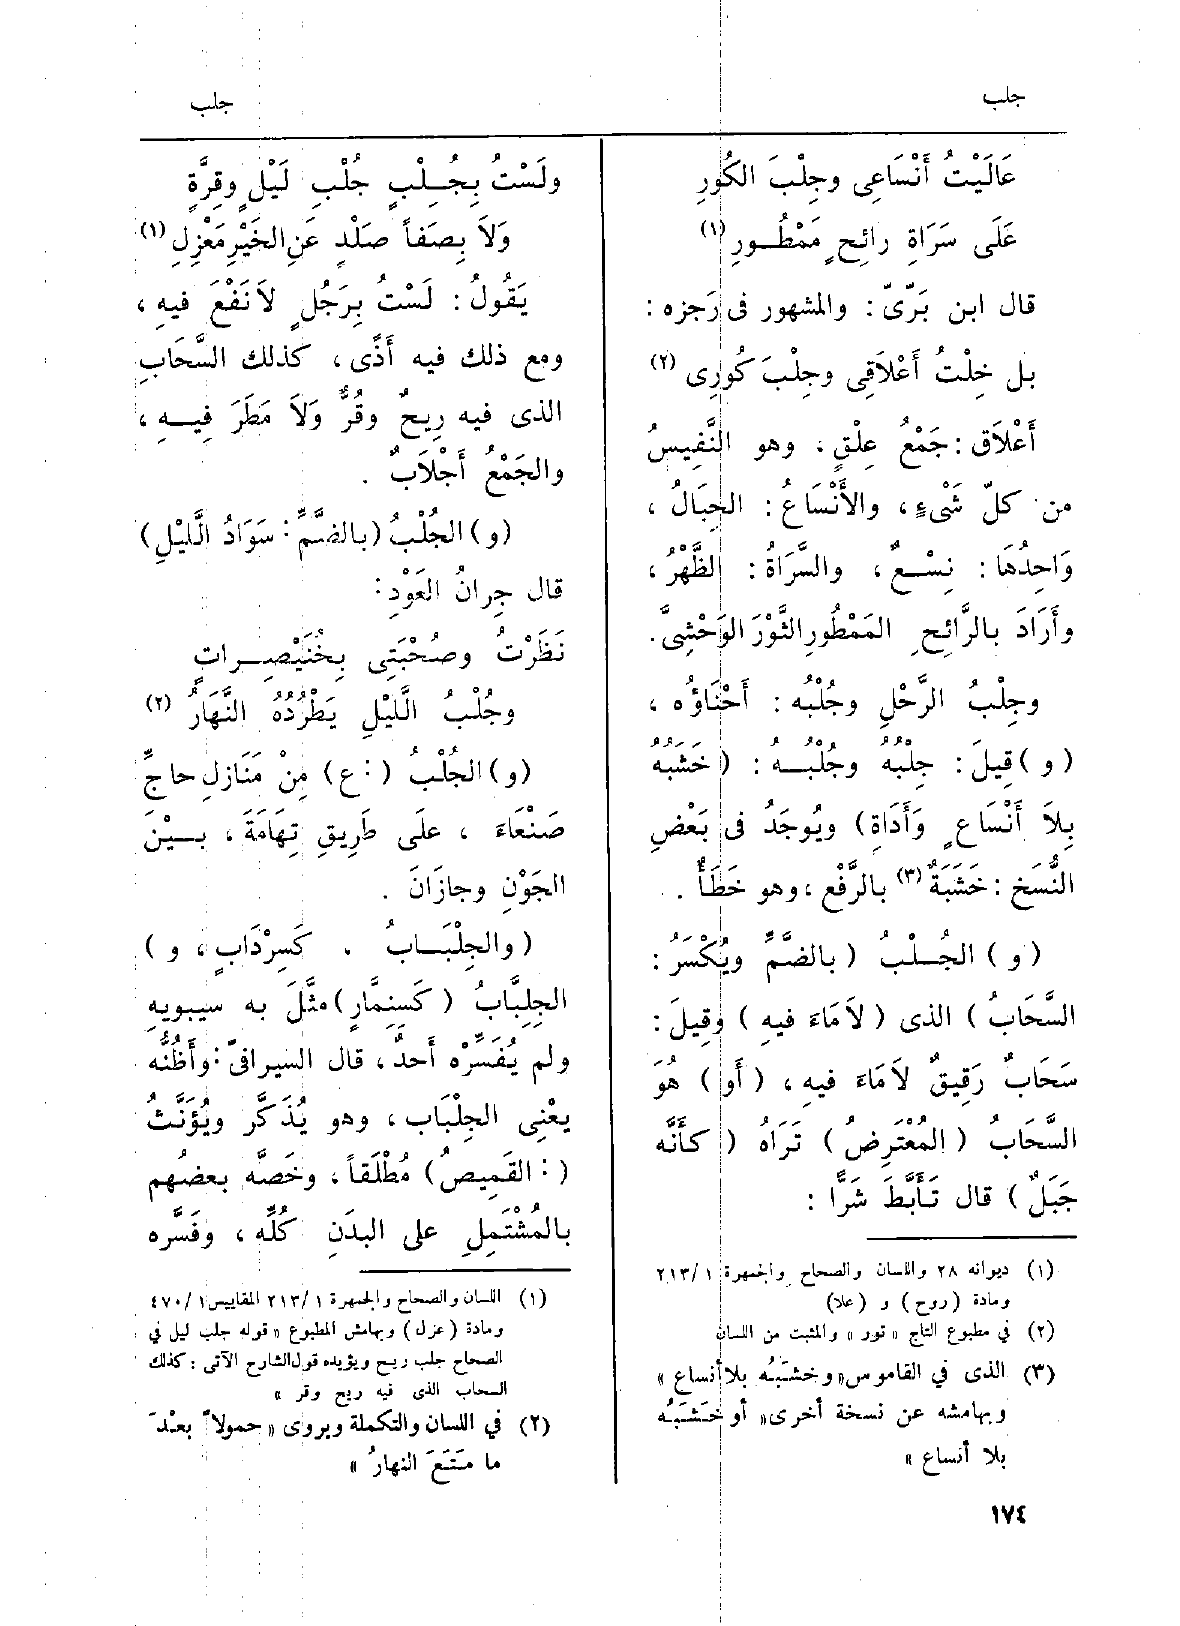 جلب
جلب
عَالَيْتُ أَنْسَاعِى وجِلْبَ الكُورِ
عَلَى سَرَاةِ رائِحٍ مَمْطُورِ (١)
قال ابن بَرّىّ : والمشهور فى رَجزه :
بل خِلْتُ أَعْلَاقِى وجِلْبَ كُورِى (٢)
أَعْلَاق : جَمْعُ عِلْقٍ ، وهو النَّفِيسُ
من كلّ شَىْءٍ ، والأَنْسَاعُ : الحِبَالُ ،
وَاحِدُهَا : نِسْعٌ ، والسَّرَاةُ : الظَّهْرُ ،
وأَرَادَ بالرَّائِحِ المَمْطُورِ الثَّوْرَ الوَحْشِىَّ .
وجِلْبُ الرَّحْلِ وجُلْبُه : أَحْنَاؤُه ،
(و) قِيلَ : جِلْبُهُ وجُلْبُهُ : (خَشَبُهُ
بِلاَ أَنْسَاعٍ وَأَدَاةٍ) ويُوجَدُ فى بَعْضِ
النُّسَخِ : خَشَبَةٌ (٣) بالرَّفْعِ ، وهو خَطَأٌ .
(و) الجُلْبُ (بالضَّمِّ ويُكْسَرُ :
السَّحَابُ) الذى (لاَمَاءَ فيه) وقِيلَ :
سَحَابٌ رَقِيقٌ لاَمَاءَ فيه ، (أَو) هُوَ
السَّحَابُ (المُعْتَرِضُ) تَرَاهُ (كأَنَّه
جَبَلٌ) قال تَأَبَّطَ شَرًّا :
(١) ديوانه ٢٨ واللسان والصحاح والجمهرة ٢١٣/١
ومادة (روح) و (علا)
(٢) في مطبوع التاج « تور » والمثبت من اللسان
(٣) الذى في القاموس « وخشبَُه بلا أنساع »
وبهامشه عن نسخة أخرى « أو خَشَبُه
بلا أنساع »
١٧٤
ولَسْتُ بِجُلْبٍ جُلْبِ لَيْلٍ وقِرَّةٍ
وَلاَ بِصَفاً صَلْدٍ عَنِ الخَيْرِ مَعْزِلِ (١)
يَقُولُ : لَسْتُ بِرَجُلٍ لاَنَفْعَ فيه ،
ومع ذلك فيه أَذًى ، كذلك السَّحَابِ
الذى فيه رِيحٌ وقُرٌّ وَلاَ مَطَرَ فِيهِ ،
والجَمْعُ أَجْلَابٌ .
(و) الجُلْبُ (بالضَّمِّ : سَوَادُ الَّليْلِ)
قال جِرانُ العَوْدِ :
نَظَرْتُ وصُحْبَتِى بِخُنَيْصِراتٍ
وجُلْبُ الَّليْلِ يَطْرُدُهُ النَّهَارُ (٢)
(و) الجُلْبُ (:ع) مِنْ مَنَازِلِ حاجِّ
صَنْعَاءَ ، علَى طَرِيقِ تِهَامَةَ ، بَيْنَ
الجَوْنِ وجازَانَ .
(والجِلْبَابُ . كَسِرْدَابٍ ، و)
الجِلِبَّابُ (كَسِنِمَّارٍ) مثَّلَ به سيبويهِ
ولم يُفَسِّرْه أَحدٌ ، قال السيرافىّ : وأَظُنُّه
يعْنِى الجِلْبَاب ، وهو يُذَكَّر ويُؤنَّثُ
(: القَمِيصُ) مُطْلَقاً ، وخَصَّه بعضُهم
بالمُشْتَمِلِ على البدَنِ كُلِّه ، وفَسَّره
(١) اللسان والصحاح والجمهرة ٢١٣/١ المقاييس ٤٧٠/١
ومادة (عزل) وبهامش المطبوع « قوله جلب ليل في
الصحاح جلب ريح ويؤيده قول الشارح الآتى : كذلك
السحاب الذى فيه ريح وقر »
(٢) في اللسان والتكملة ويروى « حمولاً بعْدَ
ما مَتَعَ النهارُ »